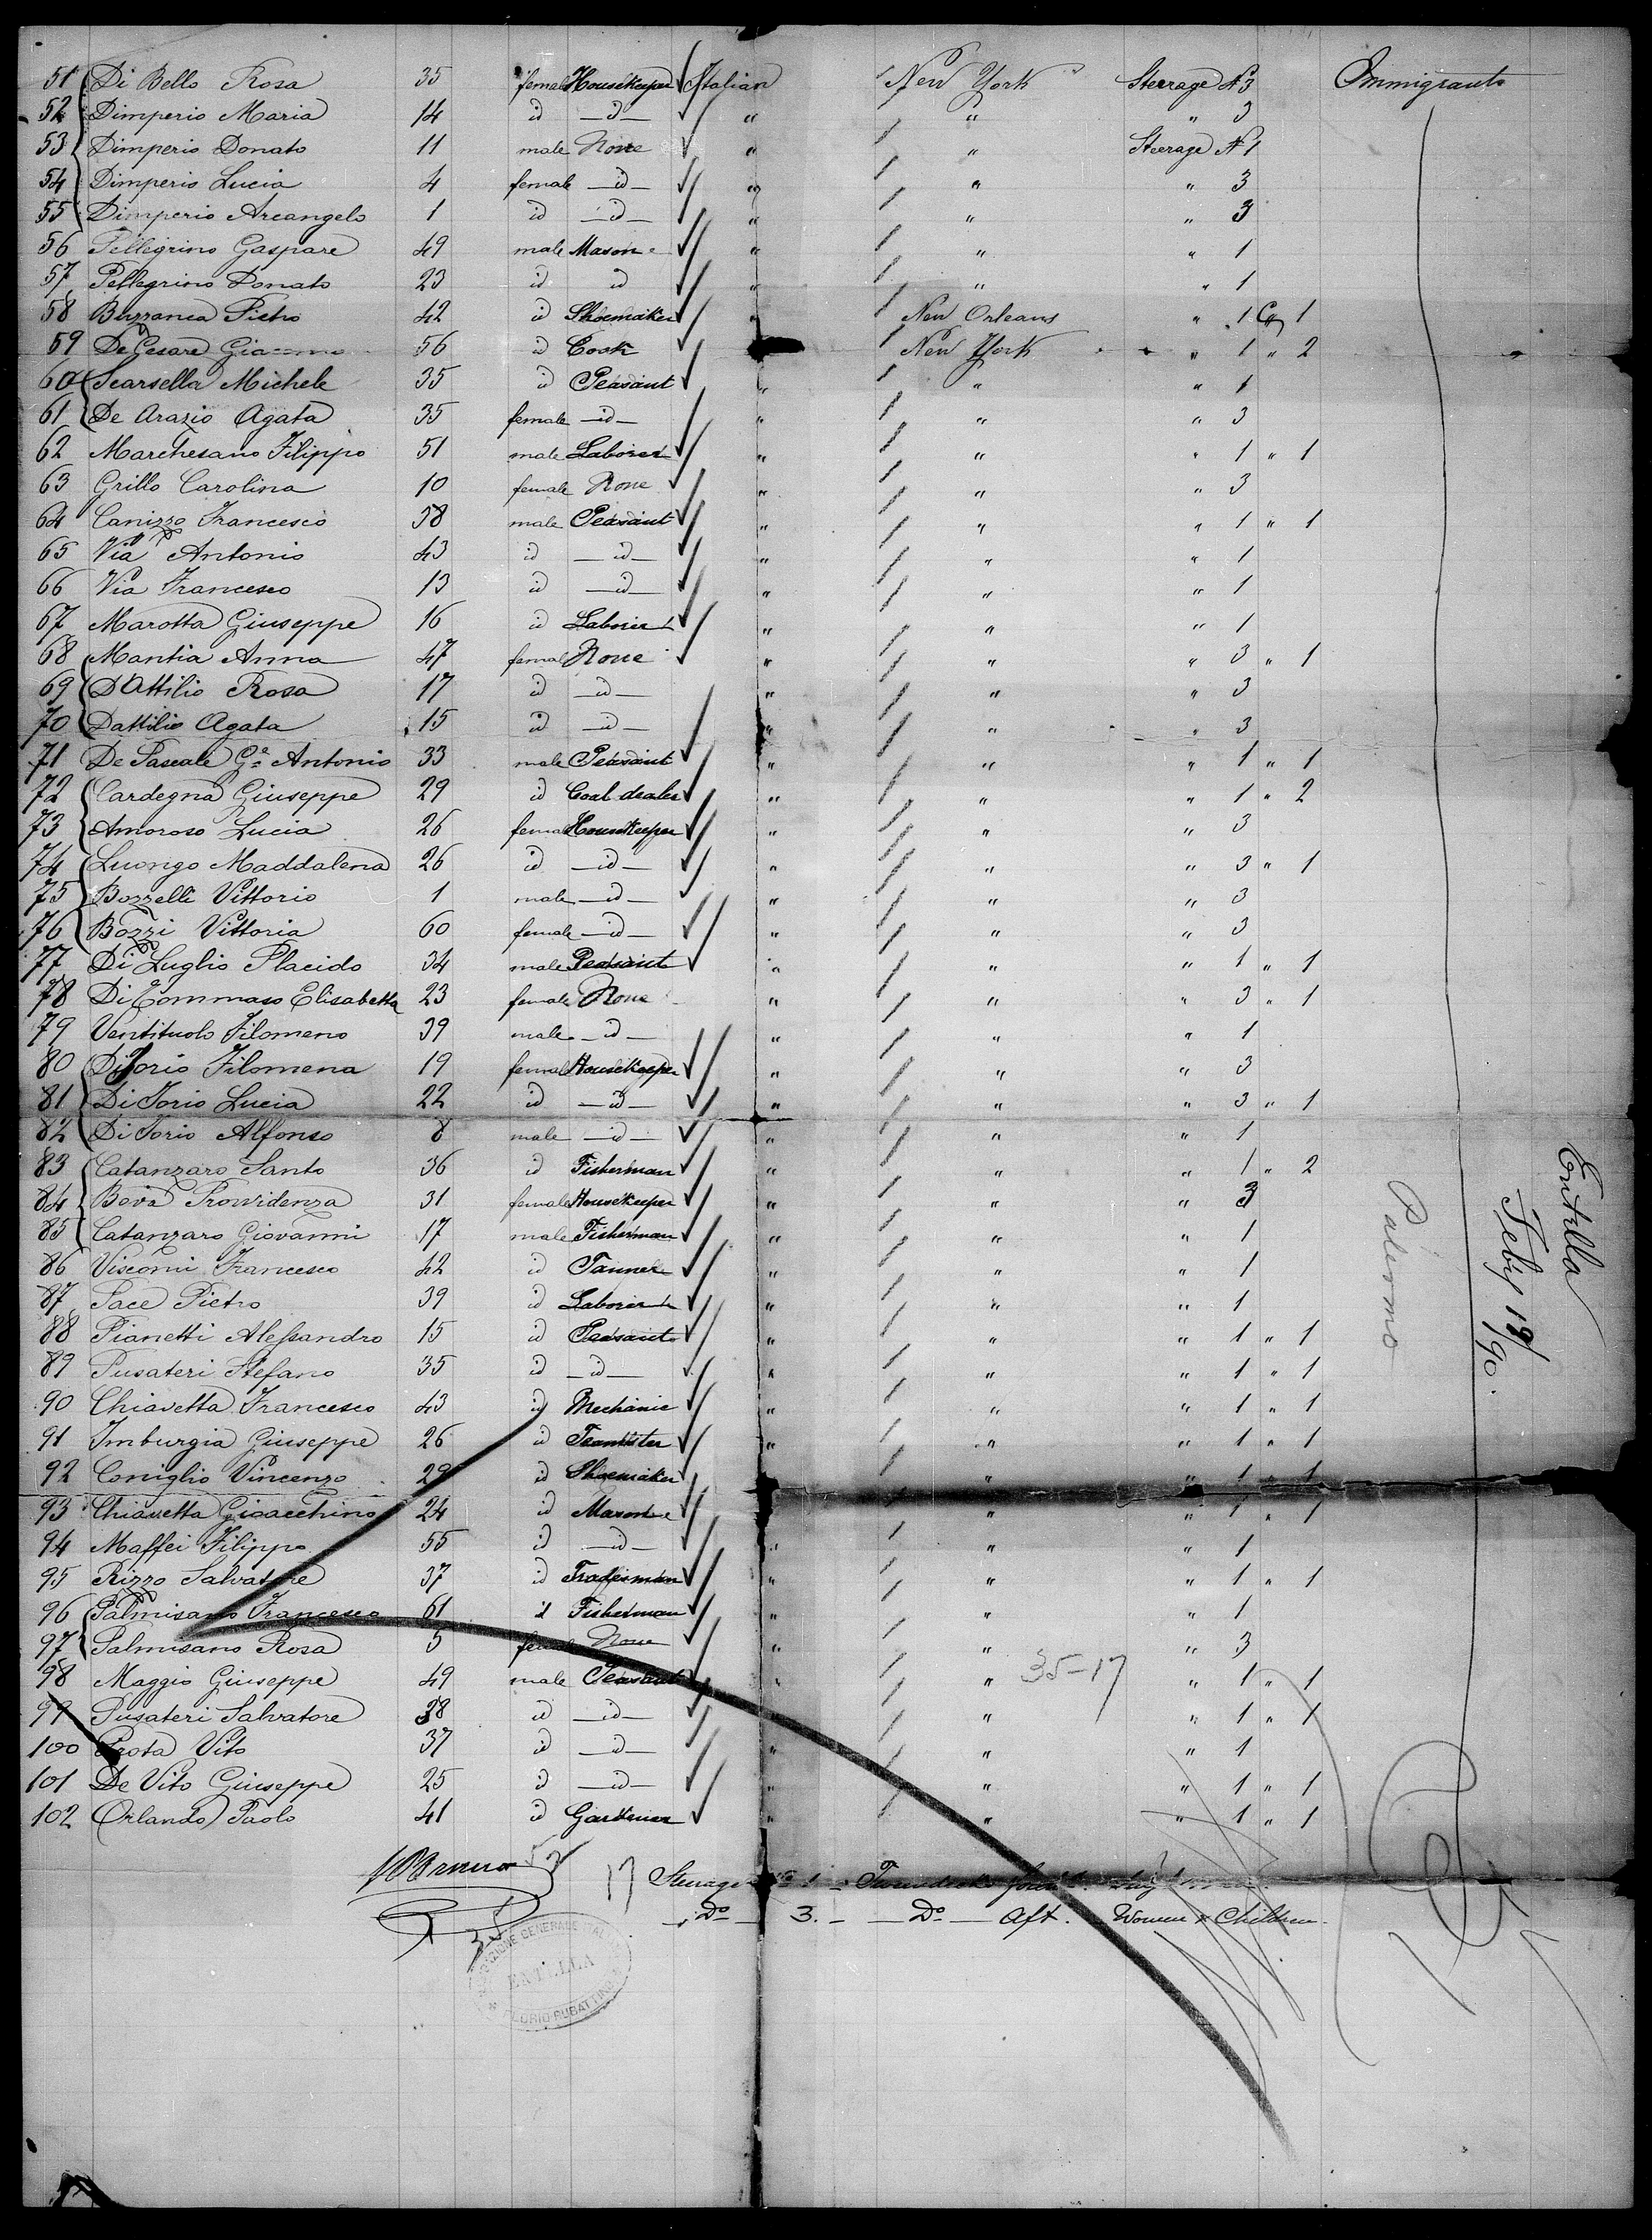 51 Di Bello Rosa 35 female Housekeeper Italian 1 New York Steerage N 3 Emmigrants
52 Dimperio Maria 14 id — id — " " " 3
53 Dimperio Donato 11 male None " 1 " Steerage N 1
54 Dimperio Lucia 4 female — id — " 1 " " 3
55 Dimperio Arcangelo 1 id — id — " 1 " " 3
56 Pellegrino Gaspare 49 male Mason " 1 " " 1
57 Pellegrino Donato 23 id id " 1 " " 1
58 Buzzanca Pietro 42 id Shoemaker " 1 New Orleans " 1 1
59 De Cesare Giacomo 56 id Cook " New York " 1 " 2
60 Scarsella Michele 35 id Peasant " 1 " " 1
61 De Arazio Agata 35 female — id — " 1 " " 3
62 Marchesano Filippo 51 male Laborer " 1 " " 1 " 1
63 Grillo Carolina 10 female None " 1 " " 3
64 Canizzo Francesco 38 male Peasant " 1 " " 1 " 1
65 Via Antonio 43 id — id — " 1 " " 1
66 Via Francesco 13 id — id — " 1 " " 1
67 Marotta Giuseppe 16 id Laborer " 1 " " 1
68 Mantia Anna 47 femal None " 1 " " 3 " 1
69 D'Attilio Rosa 17 id — id — " 1 " " 3
70 Dattilio Agata 15 id — id — " 1 " " 3
71 De Pascale Ga Antonio 33 male Peasant " 1 " " 1 " 1
72 Cardegna Giuseppe 29 id Coal dealer " 1 " " 1 " 2
73 Amoroso Lucia 26 female Housekeeper " 1 " " 3
74 Luongo Maddalena 26 id — id — " 1 " " 3 " 1
75 Bozzelli Vittorio 1 male — id — " 1 " " 3
76 Bozzi Vittoria 60 female — id — " 1 " " 3
77 Di Luglio Placido 34 male Peasant " 1 " " 1 " 1
78 Di Tommaso Elisabetta 23 female None " 1 " " 3 " 1
79 Ventituolo Filomeno 39 male — id — " 1 " " 1
80 Di Iorio Filomena 19 femal Housekeeper " 1 " " 3
81 Di Iorio Lucia 22 id — id — " 1 " " 3 " 1
82 Di Iorio Alfonso 8 male — id — " 1 " " 1
83 Catanzaro Santo 36 id Fisherman " 1 " " 1 " 2
84 Bova Provvidenza 31 female Housekeeper " 1 " " 3
85 Catanzaro Giovanni 17 male Fisherman " 1 " " 1
86 Viscomi Francesco 42 id Tanner " 1 " " 1
87 Pace Pietro 39 id Laborer " 1 " " 1
88 Pianetti Alessandro 15 id Peasant " 1 " " 1 " 1
89 Pusateri Stefano 35 id — id — " 1 " " 1 " 1
90 Chiavetta Francesco 43 id Mechanic " 1 " " 1 " 1
91 Imburgia Giuseppe 26 id Teamster " 1 " " 1 " 1
92 Coniglio Vincenzo 29 id Shoemaker " 1 " " 1 " 1
93 Chiavetta Gioacchino 24 id Mason " 1 " " 1 " 1
94 Maffei Filippo 55 id — id — " 1 " " 1
95 Rizzo Salvatore 37 id Tradesman " 1 " " 1 " 1
96 Palmisano Francesco 61 id Fisherman " 1 " " 1
97 Palmisano Rosa 5 female None " 1 " " 3
98 Maggio Giuseppe 49 male Peasant " 1 " 35-17 " 1 " 1
99 Pusateri Salvatore 38 id — id — " 1 " " 1 " 1
100 Prota Vito 37 id — id — " 1 " " 1
101 De Vito Giuseppe 25 id — id — " 1 " " 1 " 1
102 Orlando Paolo 41 id Gardener " 1 " " 1 " 1
Entella
Feby 19/90.
Palermo
17 Steerage No 1 — Tweendecks
Do 3. — Do — Aft. Women & Children
35
NAVIGAZIONE GENERALE ITALIANA
ENTELLA
FLORIO RUBATTINO